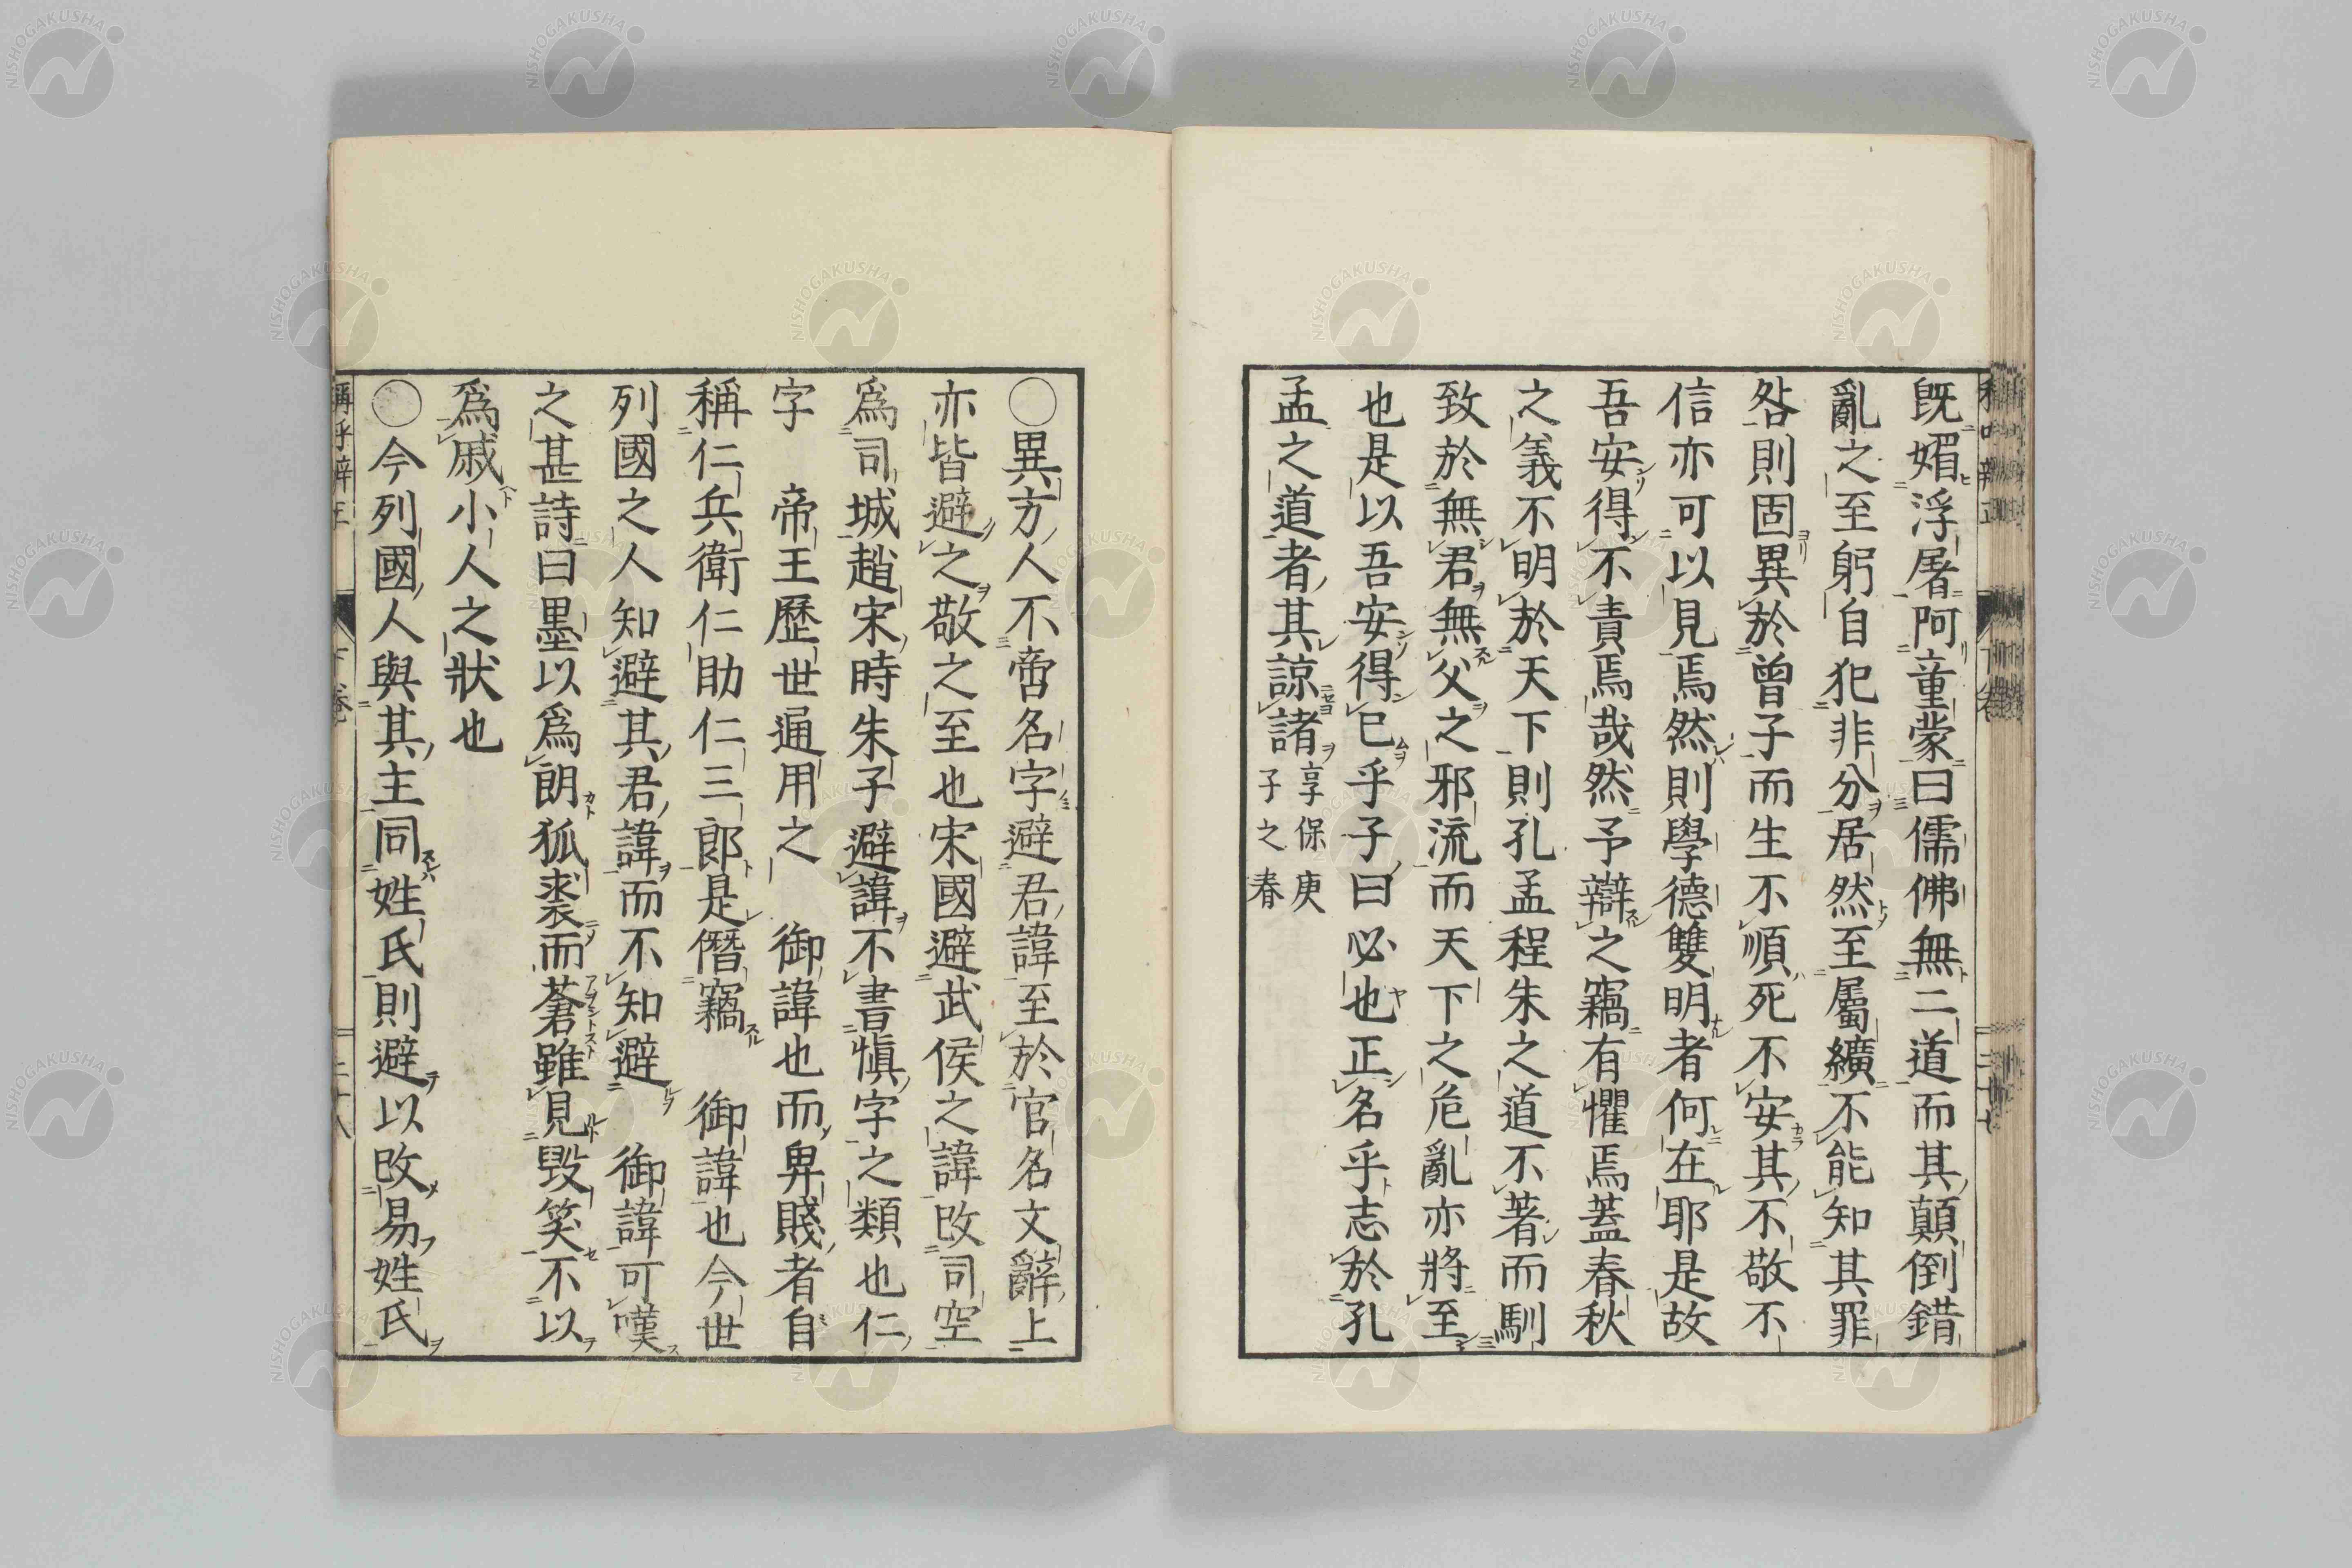 既媚浮屠阿童蒙曰儒佛無二道而其顛倒錯
亂之至躬自犯非分居然至屬纊不能知其罪
咎則固異於曾子而生不順死不安其不敬不
信亦可以見焉然則學德雙明者何在耶是故
吾安得不責焉哉然予辯之竊有懼焉蓋春秋
之義不明於天下則孔孟程朱之道不著而馴
致於無君無父之邪流而天下之危亂亦將至
也是以吾安得已乎子曰必也正名乎志於孔
孟之道者其諒諸
享保庚
子之春
○異方人不啻名字避君諱至於官名文辭上
亦皆避之敬之至也宋國避武侯之諱改司空
爲司城趙宋時朱子避諱不書愼字之類也仁
字　帝王歷世通用之　御諱也而卑賤者自
稱仁兵衛仁助仁三郎是僭竊　御諱也今世
列國之人知避其君諱而不知避　御諱可嘆
之甚詩曰墨以爲朗狐裘而蒼雖見毀笑不以
爲戚小人之狀也
○今列國人與其主同姓氏則避以改易姓氏
稱呼辨正
下卷
二十八
NISHOGAKUSHA